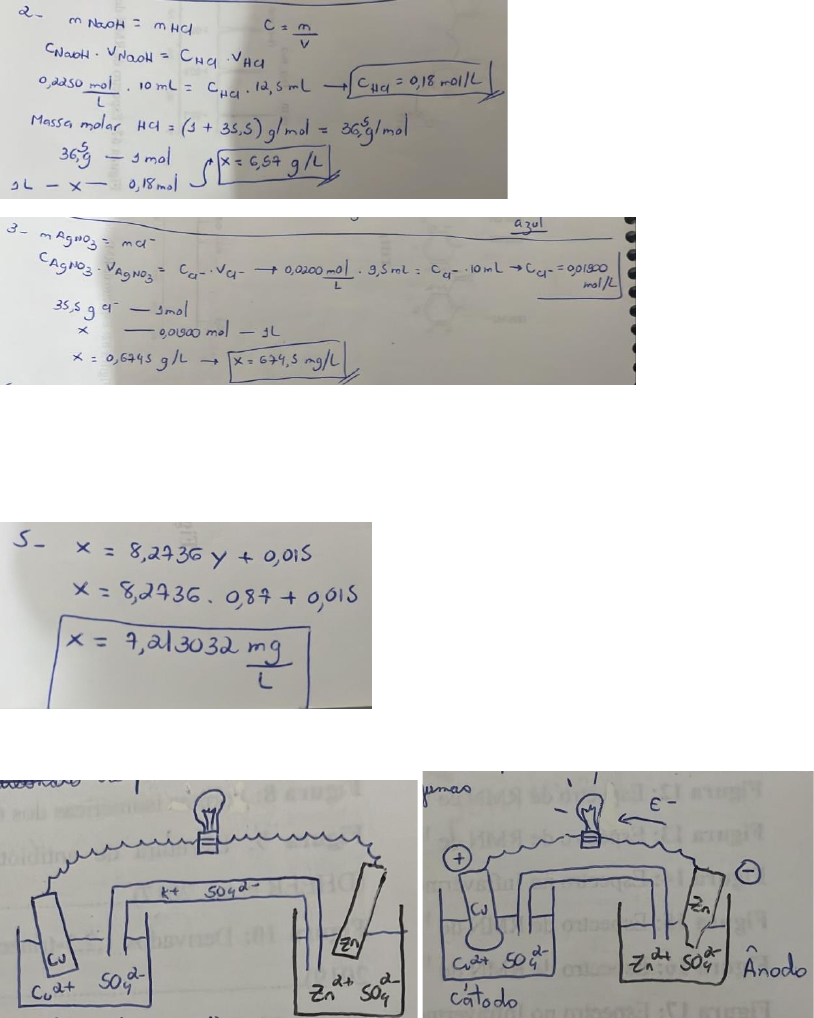 2- m NaOH = m HCl C = m/V
CNaOH . VNaOH = CHCl . VHCl
0,2250 mol/L . 10 mL = CHCl . 12,5 mL → CHCl = 0,18 mol/L
Massa molar HCl = (1 + 35,5) g/mol = 36,5 g/mol
36,5 g — 1 mol x = 6,57 g/L
1L — x — 0,18 mol
azul
3- m AgNO3 = m Cl-
CAgNO3 . VAgNO3 = CCl- . VCl- → 0,0200 mol/L . 9,5 mL = CCl- . 10 mL → CCl- = 0,01900 mol/L
35,5 g Cl- — 1 mol
x — 0,01900 mol — 1L
x = 0,6745 g/L → x = 674,5 mg/L
5- x = 8,2736 y + 0,015
x = 8,2736 . 0,87 + 0,015
x = 7,213032 mg/L
K+ SO4 2-
Cu
Zn
Cu2+ SO4 2-
Zn2+ SO4 2-
e-
+
-
Cu
Zn
Cu2+ SO4 2-
Zn2+ SO4 2-
Cátodo
Ânodo